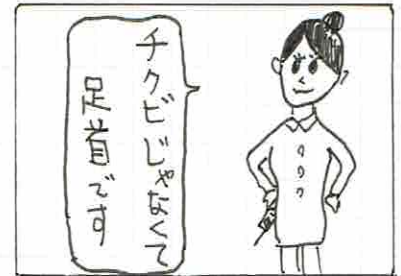 チクビじゃなくて
足首です